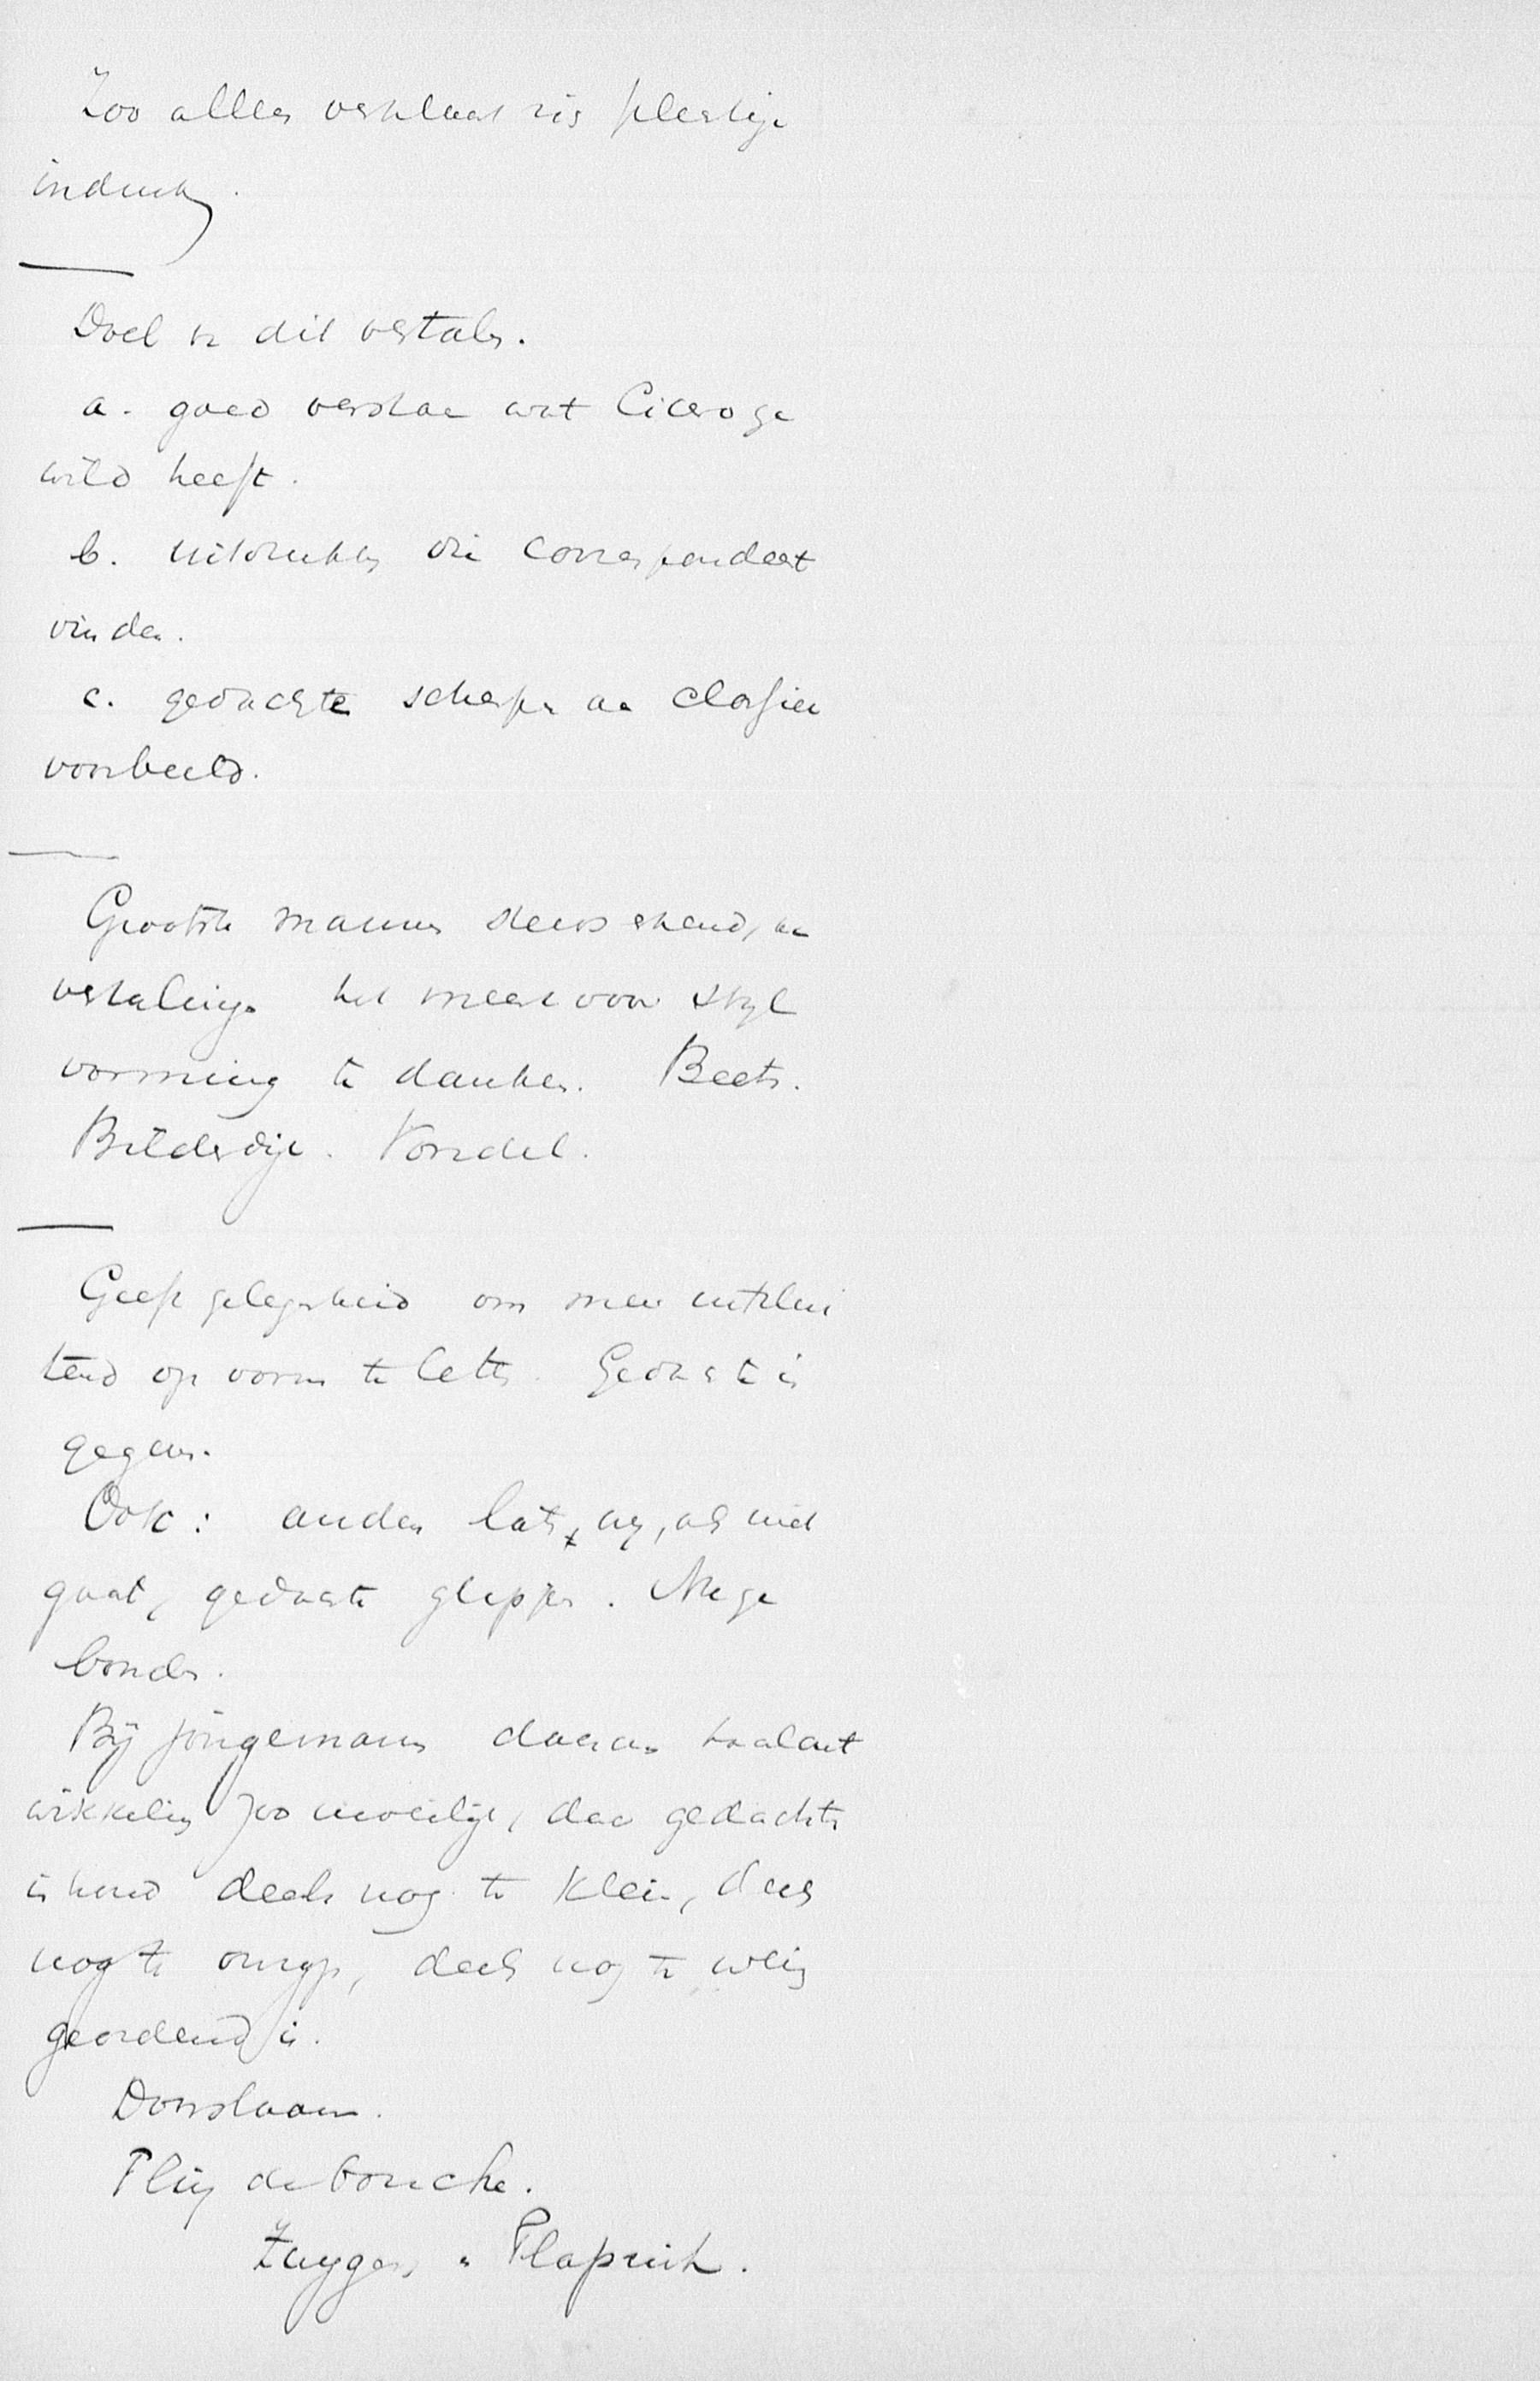 Zoo alles verklaart zijn pleitige
indruk.
Doel v. dit vertalen.
a. goed verstaan wat Cicero ge
wild heeft.
b. uitdrukking die correspondeert
vinden.
c. gedachte scherpen aan classiek
voorbeeld.
Grootste mannen steeds erkend, aan
vertalingen het meest voor styl
vorming te danken. Beets.
Bilderdijk. Vondel.
Geeft gelegenheid om meer uitslui
tend op vorm te letten. Gedachte is
gegeven.
Ook: anders laten wij, als niet
gaat, gedachte glippen. Nu ge
bonden.
Bij jongemannen daarom taalont
wikkeling zoo moeilijk, daar gedachten
inhoud deels nog te klein, deels
nog te onrijp, deels nog te weinig
geordend is.
Doorslaan.
de bouche.